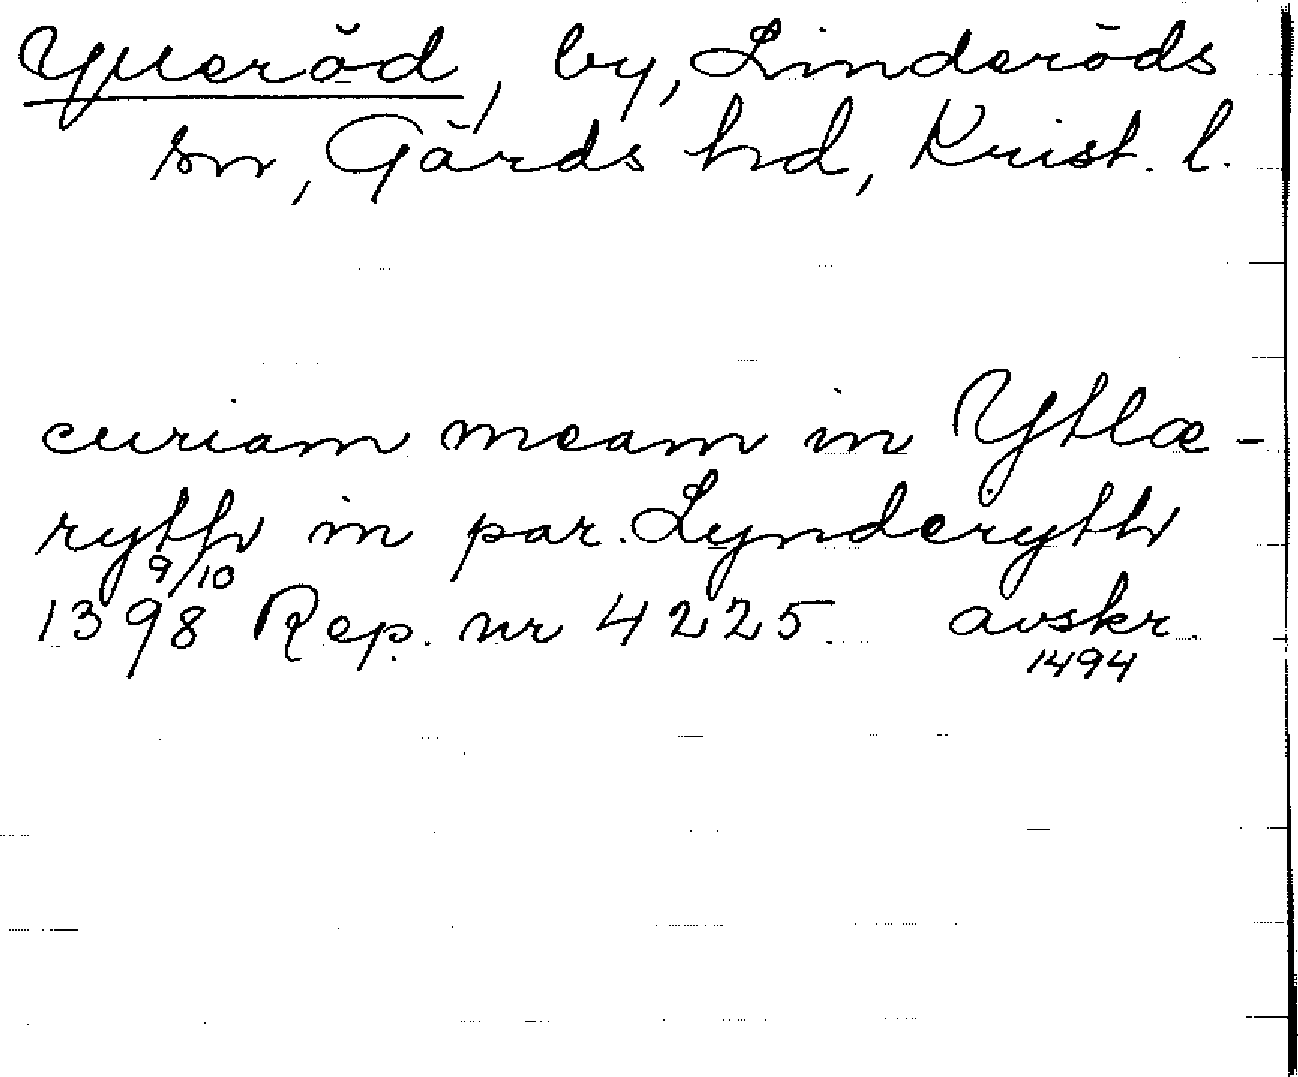 Ylleröd, by, Linderöds
sn, Gärds hd, Krist. l.
curiam meam in Ytlæ-
ryth in par. Lynderyth
9/10
1398 Rep. nr 4225 avskr.
1494